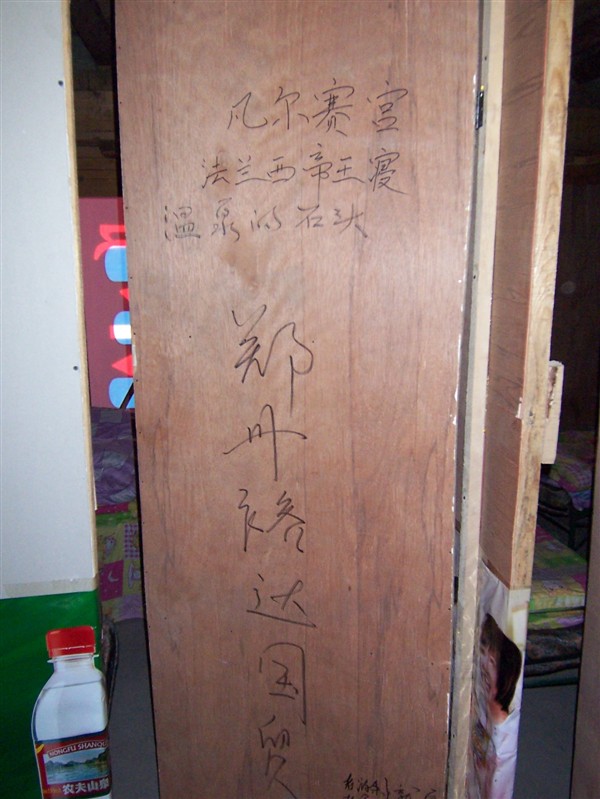 凡尔赛宫
法兰西帝王寝
温泉的石头
郑州裕达国贸
NONGFU SHANQU
农夫山泉